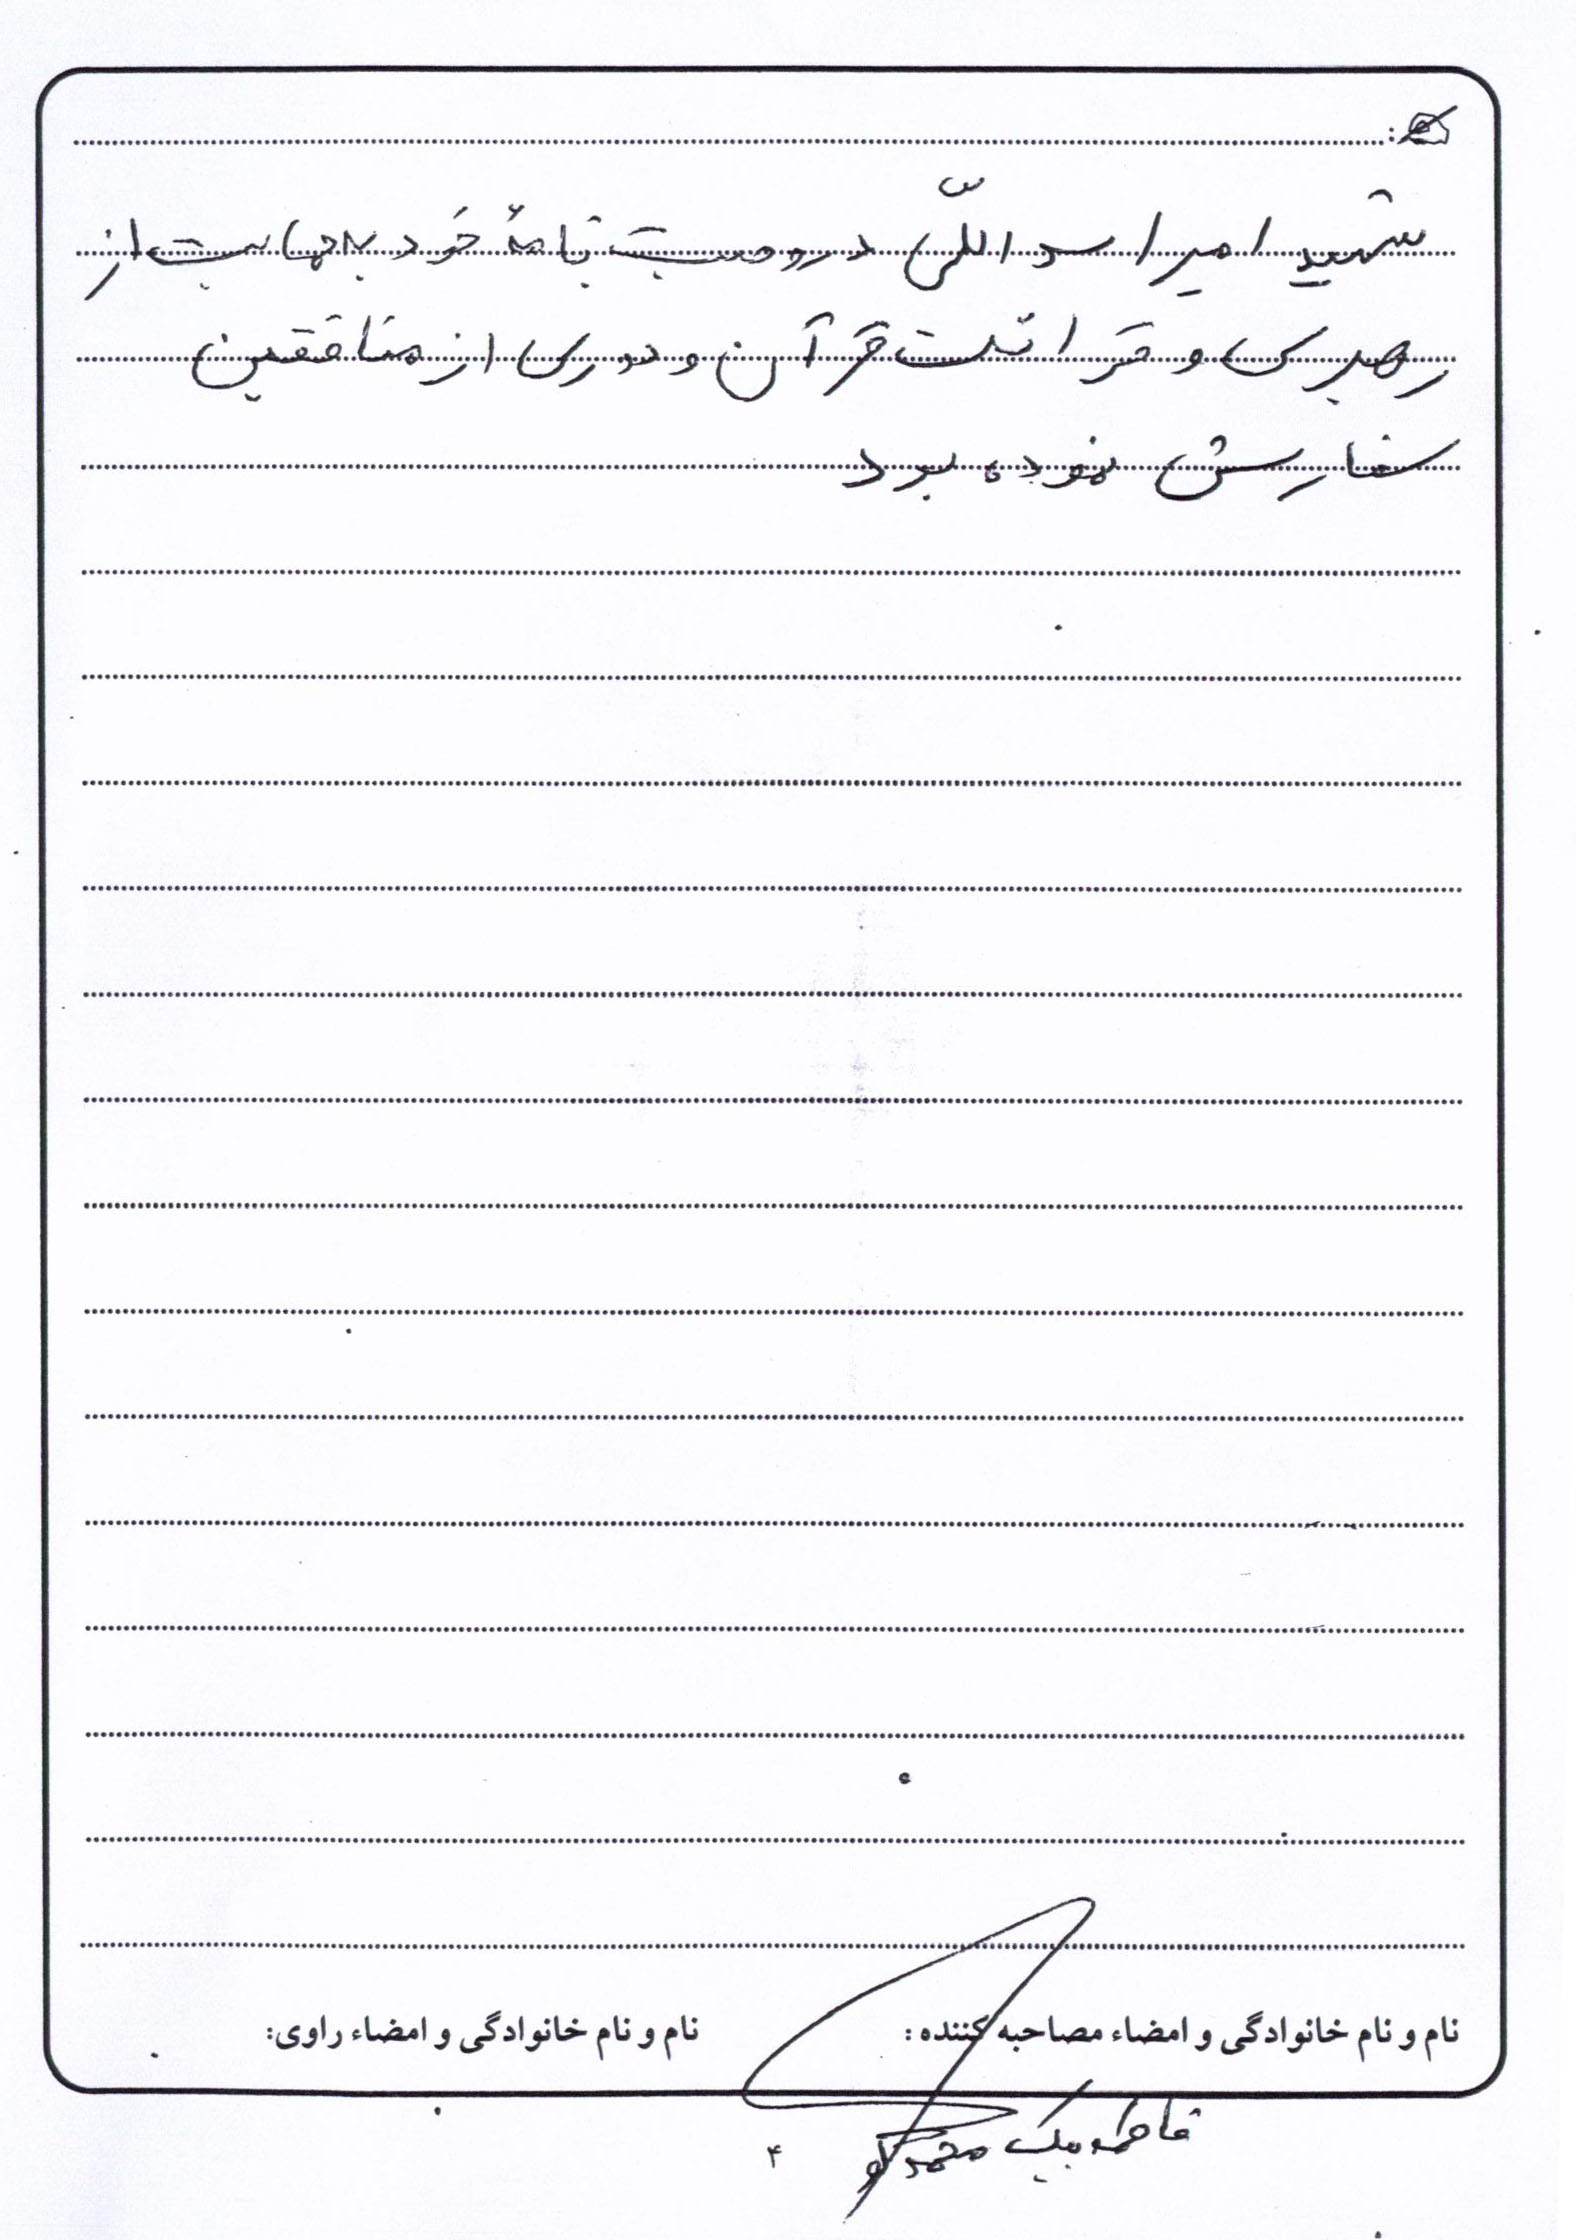 :
شهید امیر اسد اللّهی در وصیت نامهٔ خود به حمایت از
رهبری و قرائت قرآن و دوری از منافقین
سفارش نموده بود
نام و نام خانوادگی و امضاء مصاحبه کننده :
نام و نام خانوادگی و امضاء راوی:
فاطمه بیک محمد
۴